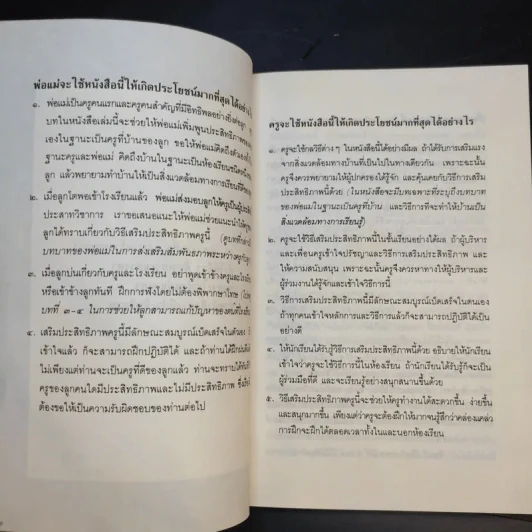 พ่อแม่จะใช้หนังสือนี้ให้เกิดประโยชน์มากที่สุดได้อย่าง
๑. พ่อแม่เป็นครูคนแรกและครูคนสำคัญที่มีอิทธิพลอย่างยิ่งต่อลูก
บทในหนังสือเล่มนี้จะช่วยให้พ่อแม่เพิ่มพูนประสิทธิภาพของ
เองในฐานะเป็นครูที่บ้านของลูก ขอให้พ่อแม่คิดถึงตัวเอง
ฐานะครูและพ่อแม่ คิดถึงบ้านในฐานะเป็นห้องเรียนชนิดหนึ่ง
ลูก แล้วพยายามทำให้บ้านเป็นสิ่งแวดล้อมทางการเรียนรู้ที่ดี
๒. เมื่อลูกโตพอเข้าโรงเรียนแล้ว พ่อแม่ส่งมอบลูกให้ครูเป็นผู้
ประสาทวิชาการ เราขอเสนอแนะให้พ่อแม่ช่วยแนะนำให้ครู
ลูกได้ทราบเกี่ยวกับวิธีเสริมประสิทธิภาพครูนี้ (ดูบทที่
บทบาทของพ่อแม่ในการส่งเสริมสัมพันธภาพระหว่างครูกับ
๓. เมื่อลูกบ่นเกี่ยวกับครูและโรงเรียน อย่าพูดเข้าข้างครูและโรงเรียน
หรือเข้าข้างลูกทันที ฝึกการฟังโดยไม่ต้องพิพากษาโทษ
บทที่ ๓-๔ ในการช่วยให้ลูกสามารถแก้ปัญหาของตนที่โรงเรียน
๔. เสริมประสิทธิภาพครูนี้มีลักษณะสมบูรณ์เบ็ดเสร็จในตัวเอง
เข้าใจแล้ว ก็จะสามารถฝึกปฏิบัติได้ และถ้าท่านได้ฝึกฝน
ไม่เพียงแต่ท่านจะเป็นครูที่ดีของลูกแล้ว ท่านจะทรายได้
ครูของลูกคนใดมีประสิทธิภาพและไม่มีประสิทธิภาพ ซึ่ง
ต้องขอให้เป็นความรับผิดชอบของท่านต่อไป
ครูจะใช้หนังสือนี้ให้เกิดประโยชน์มากที่สุดได้อย่างไร
๑. ครูจะใช้กลวิธีต่าง ๆ ในหนังสือนี้ได้อย่างมีผล ถ้าได้รับการเสริมแรง
จากสิ่งแวดล้อมทางบ้านที่เป็นไปในทางเดียวกัน เพราะฉะนั้น
ครูจึงควรพยายามให้ผู้ปกครองได้รู้จัก และคุ้นเคยกับวิธีการเสริม
ประสิทธิภาพนี้ด้วย (ในหนังสือจะมีบทเฉพาะที่ระบุถึงบทบาท
ของพ่อแม่ในฐานะเป็นครูที่บ้าน และวิธีการที่จะทำให้บ้านเป็น
สิ่งแวดล้อมทางการเรียนรู้)
๒. ครูจะใช้วิธีเสริมประสิทธิภาพนี้ในชั้นเรียนอย่างได้ผล ถ้าผู้บริหาร
และเพื่อนครูเข้าใจปรัชญาและวิธีการเสริมประสิทธิภาพ และ
ให้ความสนับสนุน เพราะฉะนั้นครูจึงควรหาทางให้ผู้บริหารและ
ผู้ร่วมงานได้รู้จักและเข้าใจวิธีการนี้
๓. วิธีการเสริมประสิทธิภาพนี้มีลักษณะสมบูรณ์เบ็ดเสร็จในตนเอง
ถ้าทุกคนเข้าใจหลักการและวิธีการแล้วก็จะสามารถปฏิบัติได้เป็น
อย่างดี
๔. ให้นักเรียนได้รับรู้วิธีการเสริมประสิทธิภาพนี้ด้วย อธิบายให้นักเรียน
เข้าใจว่าครูจะใช้วิธีการนี้ในห้องเรียน ถ้านักเรียนได้รับรู้ก็จะเป็น
ผู้ร่วมมือที่ดี และจะเรียนรู้อย่างสนุกสนานขึ้นด้วย
๕. วิธีเสริมประสิทธิภาพครูนี้จะช่วยให้ครูทำงานได้สะดวกขึ้น ง่ายขึ้น
และสนุกมากขึ้น เพียงแต่ว่าครูจะต้องฝึกให้มากจนรู้สึกว่าคล่องแคล่ว
การฝึกจะฝึกได้ตลอดเวลาทั้งในและนอกห้องเรียน